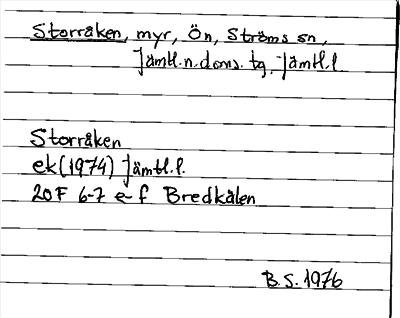 Storråken, myr, Ön, Ströms sn,
Jämtl.n.doms.tg, Jämtl.l.
Storråken
ek (1974) Jämtl.l.
20F 6-7 e-f Bredkålen
B.S. 1976